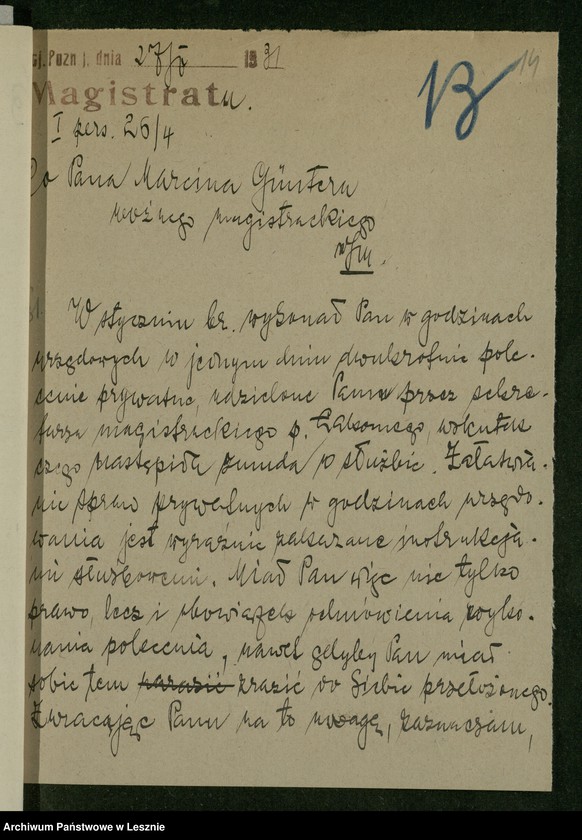 Pozn j. dnia 27/I 1931
Magistratu.
I pers. 26/4
13
14
Do Pana Marcina Güntera
woźnego magistrackiego
w/m.
W styczniu br. wykonał Pan w godzinach
urzędowych w jednym dniu dwukrotnie pole-
cenie prywatne, udzielone Panu przez sekre-
tarza magistrackiego p. Łakomego, wskutek
czego nastąpiła zwłoka w służbie. Załatwia-
nie spraw prywatnych w godzinach urzędo-
wania jest wyraźnie zakazane instrukcja-
mi służbowemi. Miał Pan więc nie tylko
prawo, lecz i obowiązek odmówienia wyko-
nania polecenia, nawet gdyby Pan miał
sobie tem narazić zrazić do siebie przełożonego.
Zwracając Panu na to uwagę, zaznaczam,
Archiwum Państwowe w Lesznie